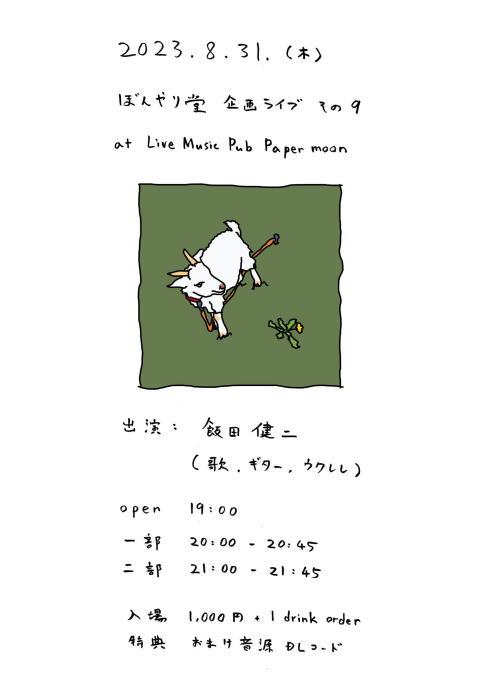 2023.8.31.(木)
ぼんやり堂 企画ライブ その9
at Live Music Pub Paper moon
出演: 飯田 健二
(歌、ギター、ウクレレ)
open 19:00
一部 20:00 - 20:45
二部 21:00 - 21:45
入場 1,000円 + 1 drink order
特典 おまけ音源 DLコード